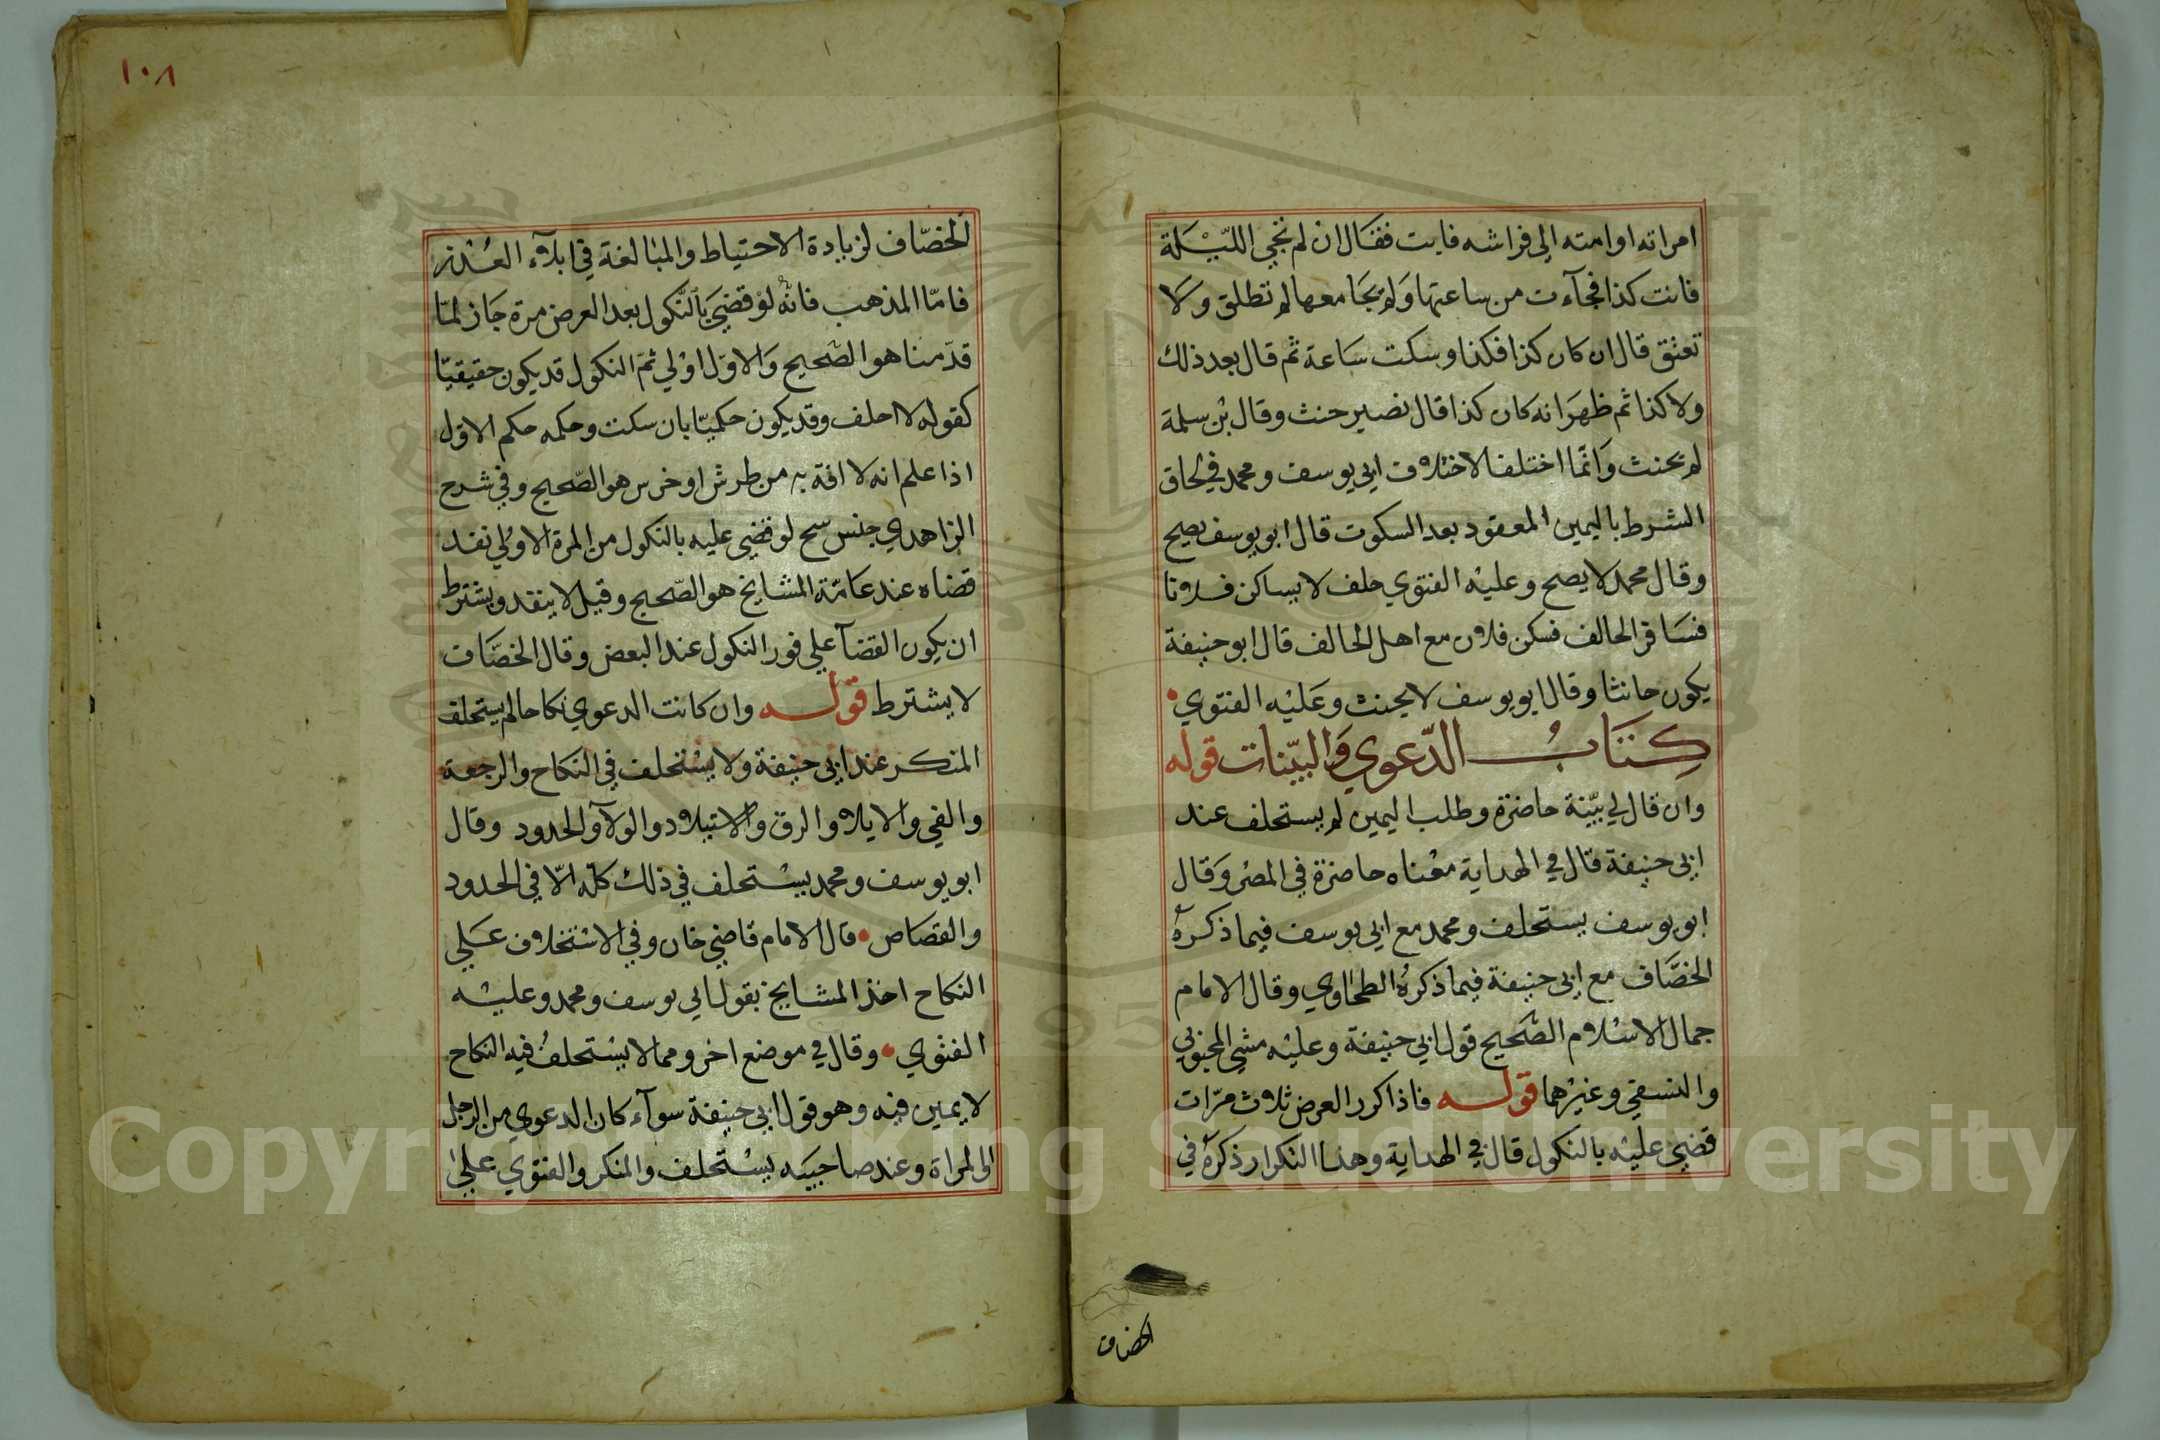 امراته او امته الى فراشه فابت فقال ان لم تجي الليلة
فانت كذا فجآءت من ساعتها ولم يجامعها لم تطلق ولا
تعتق قال ان كان كذا فكذا وسكت ساعة ثم قال بعد ذلك
ولا كذا ثم ظهر انه كان كذا قال نصير حنث وقال بن سلمة
لم يحنث وانما اختلفا لاختلاف ابي يوسف ومحمد في لحاق
الشرط باليمين المعقود بعد السكوت قال ابو يوسف يصح
وقال محمد لا يصح وعليه الفتوي حلف لا يساكن فلانا
فسافر الحالف فسكن فلان مع اهل الحالف قال ابو حنيفة
يكون حانثا وقال ابو يوسف لا يحنث وعليه الفتوي
كتاب الدعوي والبينات قوله
وان قال لي بينة حاضرة وطلب اليمين لم يستحلف عند
ابي حنيفة قال في الهداية معناه حاضرة في المصر وقال
ابو يوسف يستحلف ومحمد مع ابي يوسف فيما ذكره
الخصاف مع ابي حنيفة فيما ذكره الطحاوي وقال الامام
جمال الاسلام الصحيح قول ابي حنيفة وعليه مشي المحبوبي
والنسفي وغيرهما قوله فاذا كرر العرض ثلاث مرات
قضي عليه بالنكول قال في الهداية وهذا التكرار ذكره في
الخصاف
١٠٨
الخصاف لزيادة الاحتياط والمبالغة في ابلآء العذر
فاما المذهب فانه لو قضي بالنكول بعد العرض مرة جاز لما
قدمنا هو الصحيح والاول اولي ثم النكول قد يكون حقيقيا
كقوله لا احلف وقد يكون حكميا بان سكت وحكمه حكم الاول
اذا علم انه لا افة به من طرش او خرس هو الصحيح وفي شرح
الزاهدي جنس سح لو قضي عليه بالنكول من المرة الاولي نفد
قضاه عند عامة المشايخ هو الصحيح وقيل لا ينفد ويشترط
ان يكون القضآ علي فور النكول عند البعض وقال الخصاف
لا يشترط قوله وان كانت الدعوي نكاحا لم يستحلف
المنكر عند ابي حنيفة ولا يستحلف في النكاح والرجعة
والفي والايلاء والرق والاستيلاد والولآ والحدود وقال
ابو يوسف ومحمد يستحلف في ذلك كله الا في الحدود
والقصاص قال الامام قاضي خان وفي الاستحلاف علي
النكاح اخذ المشايخ بقول ابي يوسف ومحمد وعليه
الفتوي وقال في موضع اخر ومما لا يستحلف فيه النكاح
لا يمين فيه وهو قول ابي حنيفة سوآء كان الدعوي من الرجل
او المراة وعند صاحبيه يستحلف والمنكر والفتوي علي
Copyright © King Saud University